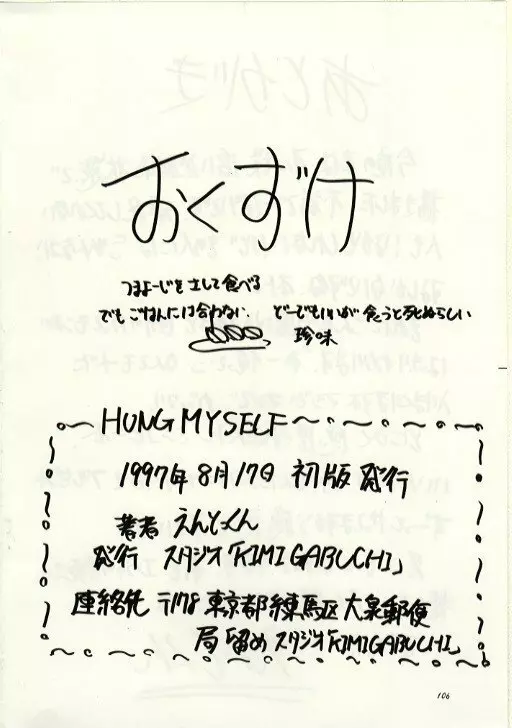 おくずけ
つまよーじをさして食べる
でもごはんには合わない どーでもいいが 食うと死ぬらしい
珍味
HUNG MYSELF
1997年8月17日 初版発行
著者 えんどっくん
発行 スタジオ「KIMIGABUCHI」
連絡先 〒178 東京都練馬区大泉郵便
局留め スタジオ「KIMIGABUCHI」
106